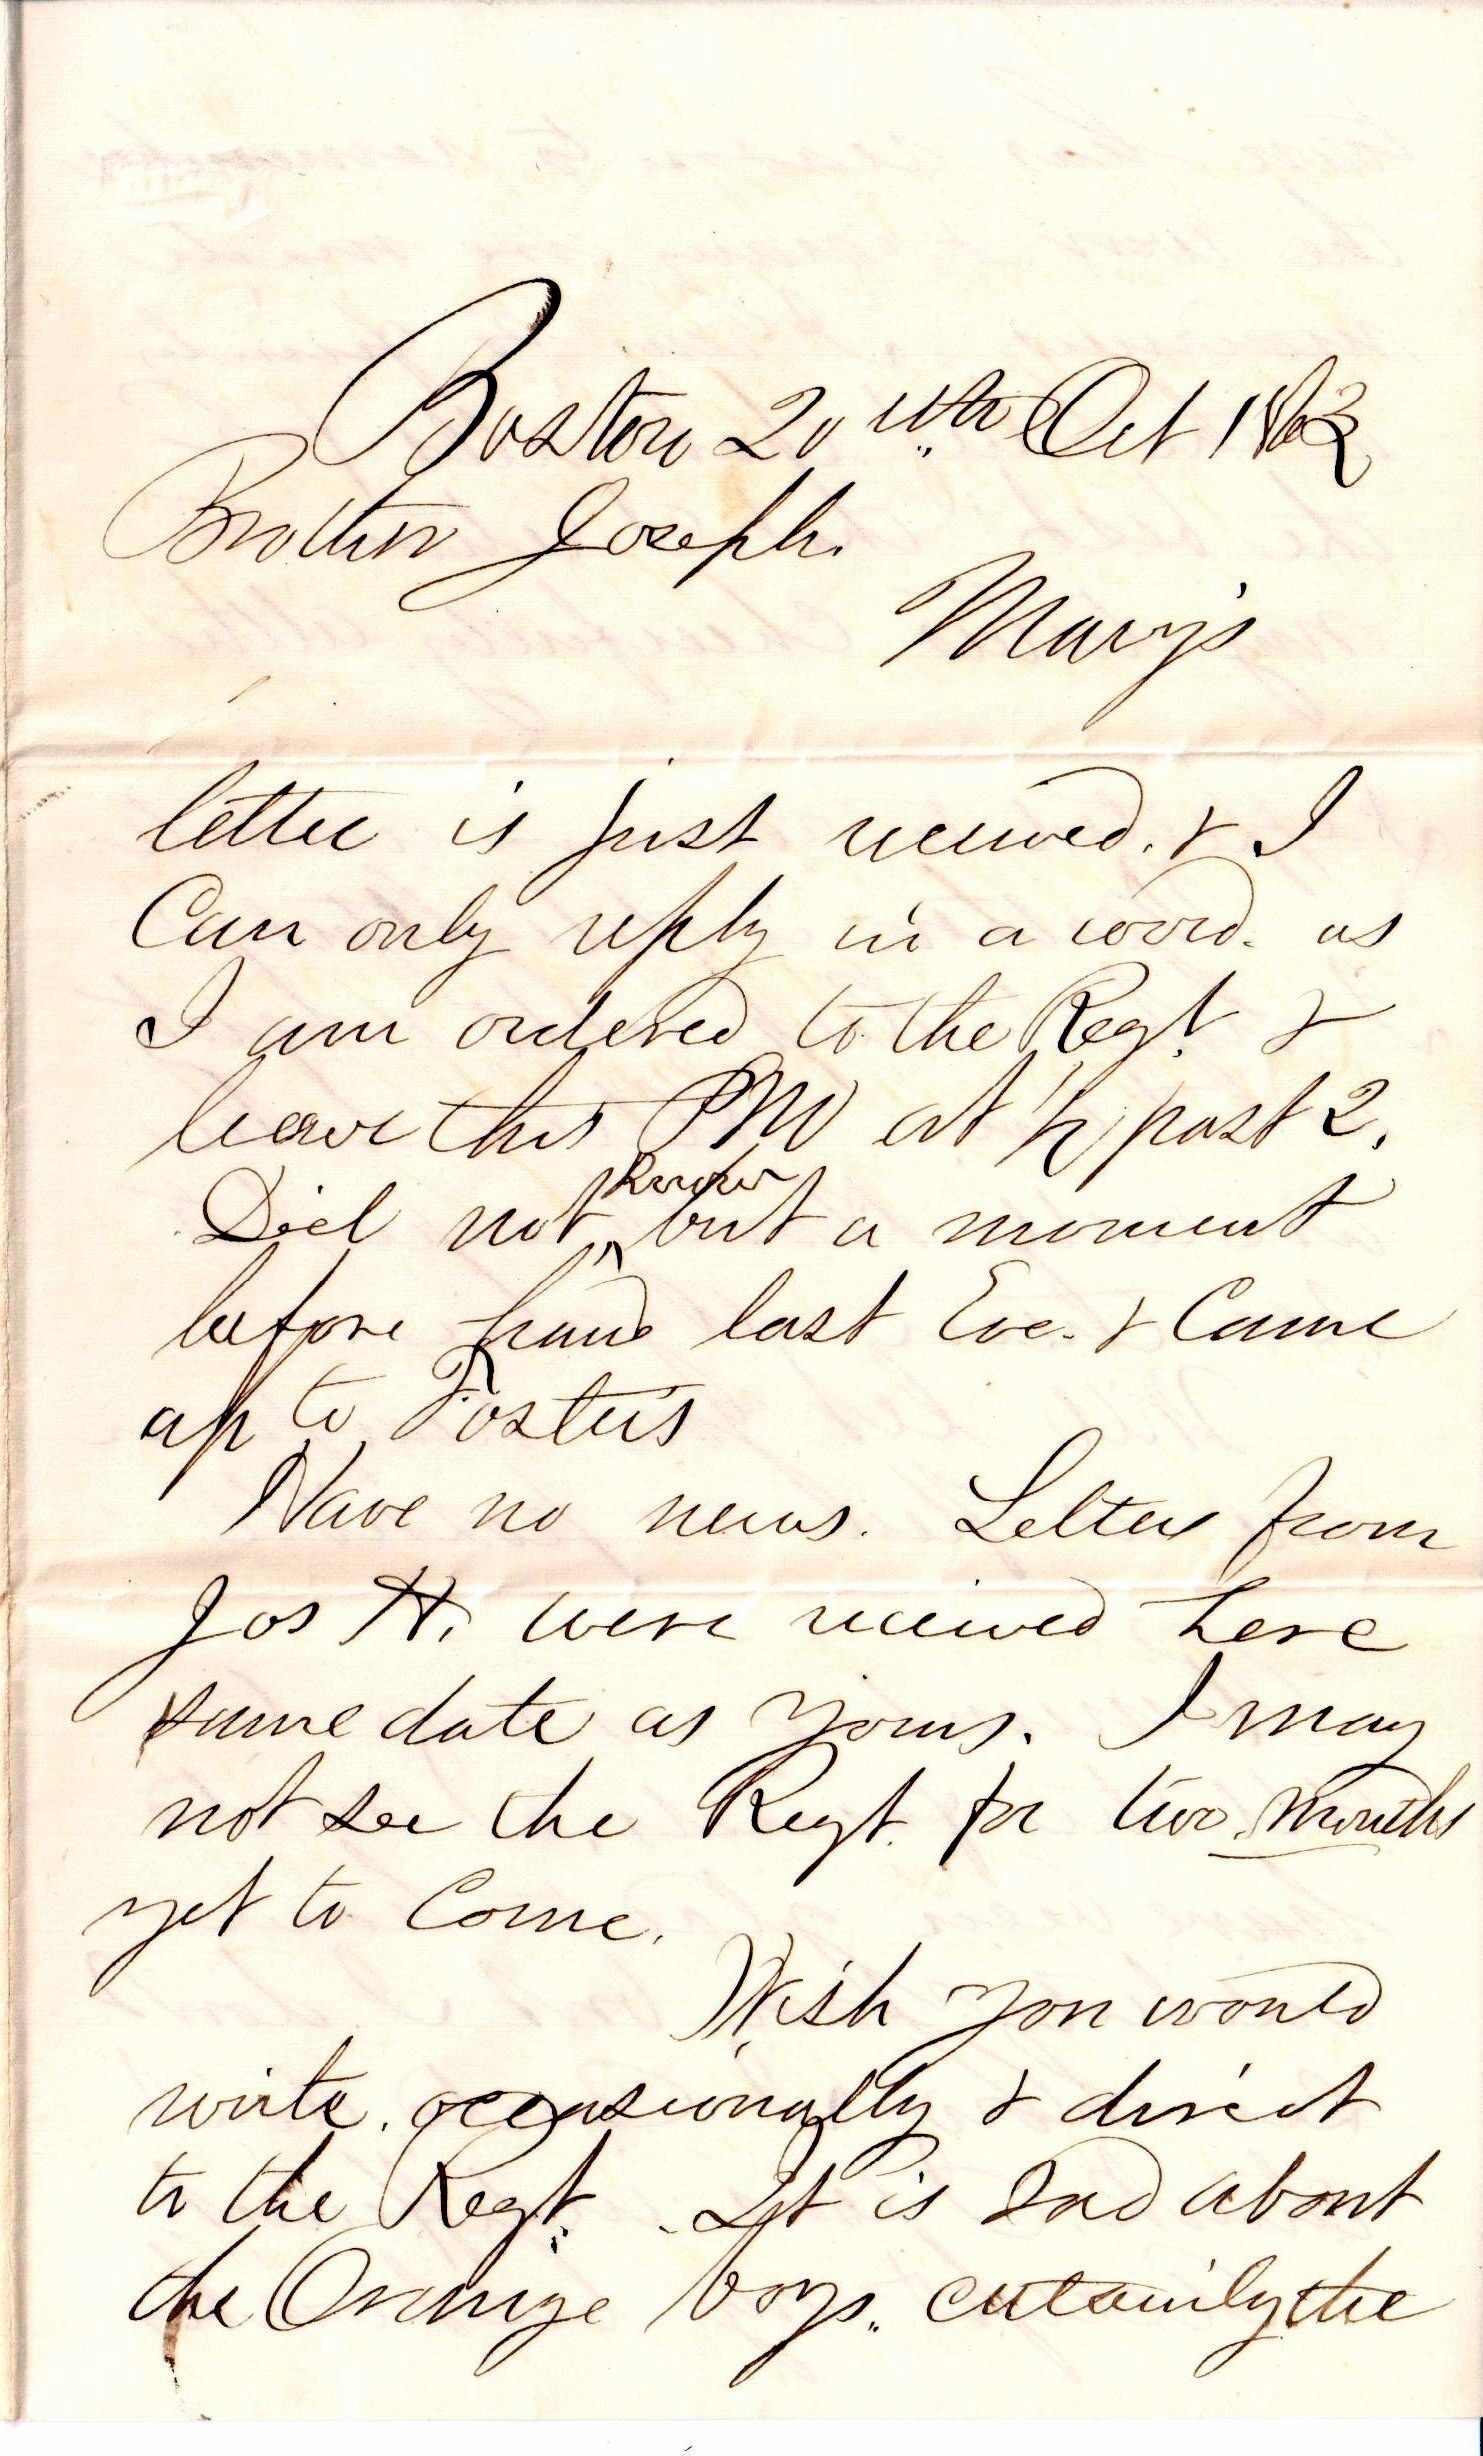 Boston 20th Oct 1863
Brother Joseph.
Mary's
letter is just received. & I
Can only reply in a word. as
I am ordered to the Regt. &
leave this PM at ½ past 2.
know
Did not ^ but a moment
before hand last Eve. & Came
up to Fosters
Have no news. Letters from
Jos H. were received here
same date as yours. I may
not see the Regt. for two months
yet to Come.
Wish you would
write. occasionally & direct
to the Regt. It is sad about
the Orange boys. certainly the